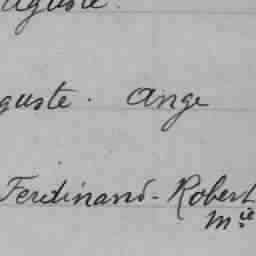 uguste.
guste. Ange
Ferdinand-Robert
Mie